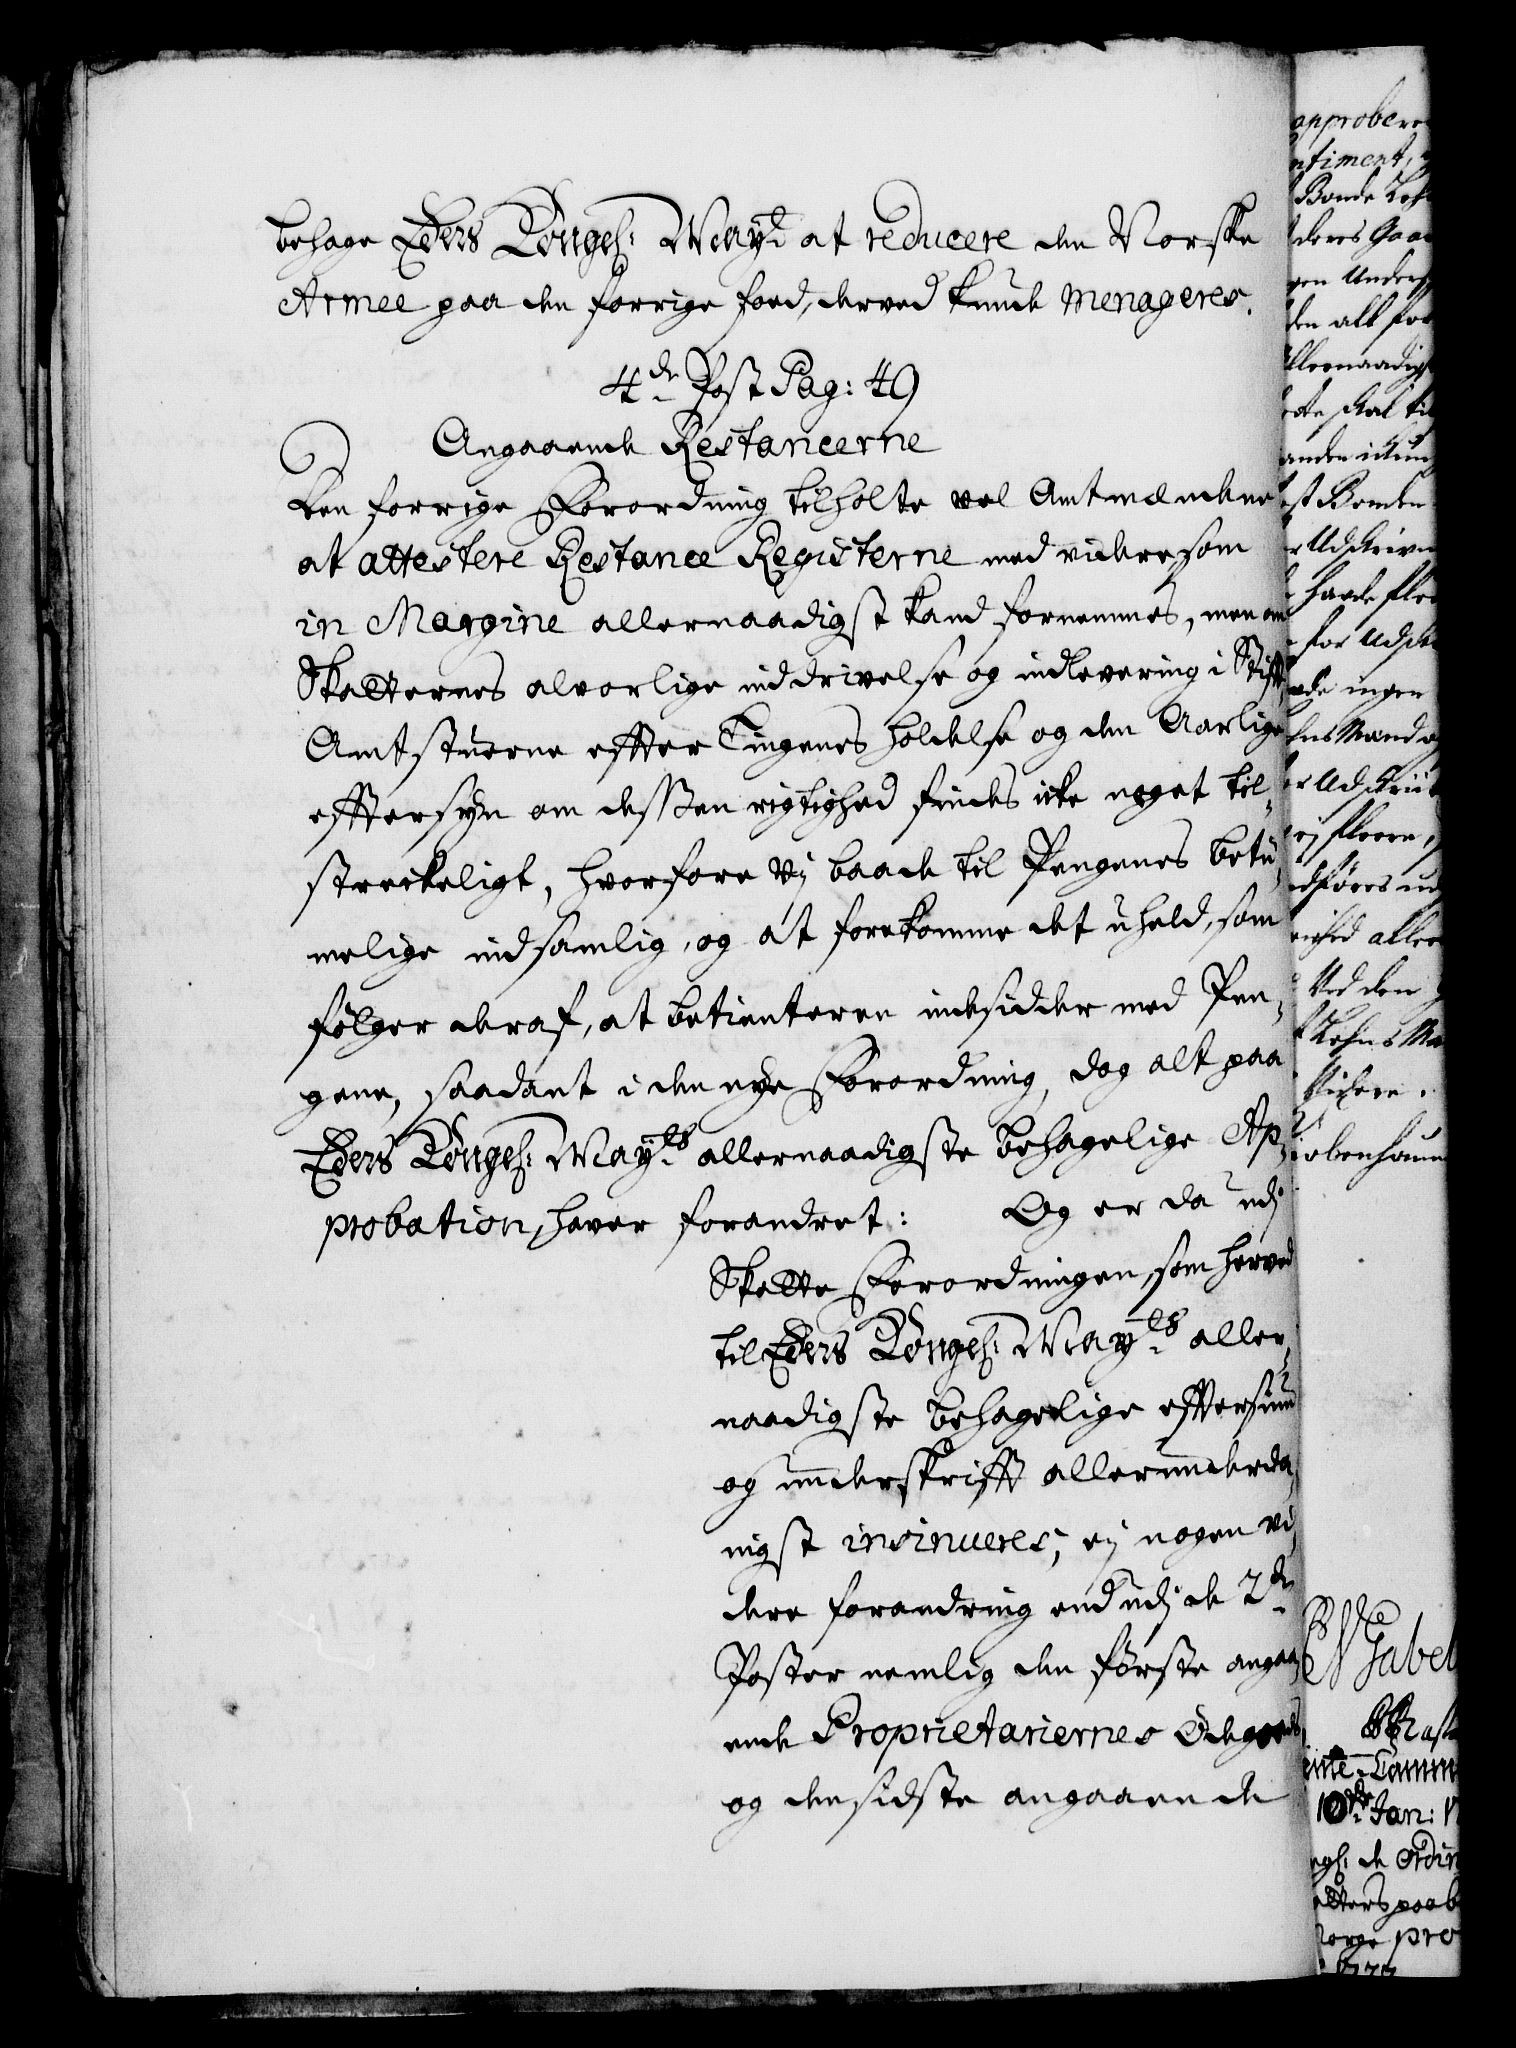 behage Eders Kongel: May.t at reducere den Norske
Armee paa den forrige foed, derved kunde menageres.
4.de Post Pag: 49
Angaaende Restancerne
Den forrige Forordning tilholte vel Amtmændene
at attestere Restance Registerne med videre, som
in Margine allernaadigst kand fornemmes, men om
Skatternes alvorlige inddrivelse og indlevering i Stift
Amtstuerne effter Tingenes holdelse og den Aarlige
efftersyn om dessen rigtighed findes icke noget til-
streckeligt, hvorfore vj baade til Pengenes betii-
melige indsamlig, og at forekomme det uheld, som
følger deraf, at betienterne indesidder med Pen-
gene, saadant i den nye Forordning, dog alt paa
Eders Kongel: May.ts allernaadigste behagelige Ap-
probation, haver forandret: Og er da udj
Skatte Forordningen, som herved
til Eders Kongel: May.ts aller-
naadigste behagelige efftersiun
og underskrifft allerunderda-
nigst insinueres, ej nogen vi-
dere forandring end udj de 2.de
Poster nemlig den første angaa-
ende Proprietariernes Ødegaards
og den sidste angaaende
approbere
Bonde
deres Gaar
den alt for
allernaadigst
skal til
anden
est Bonden
Udskrivn
havde fler
for Udskr
ingen
Mand og
Udskriv
ej fleere
aller
Ved den
Lehns Ma
Videre
Gabel
10.de Jan: 17
de Ordin
paab
Norge pro